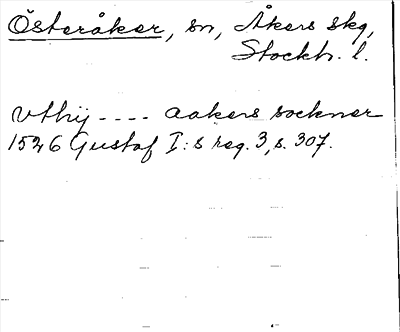 Österåker, sn, Åkers skg,
Stockh. l.
vthij ---- aakers sockner
1526 Gustaf I:s reg. 3, s. 307.